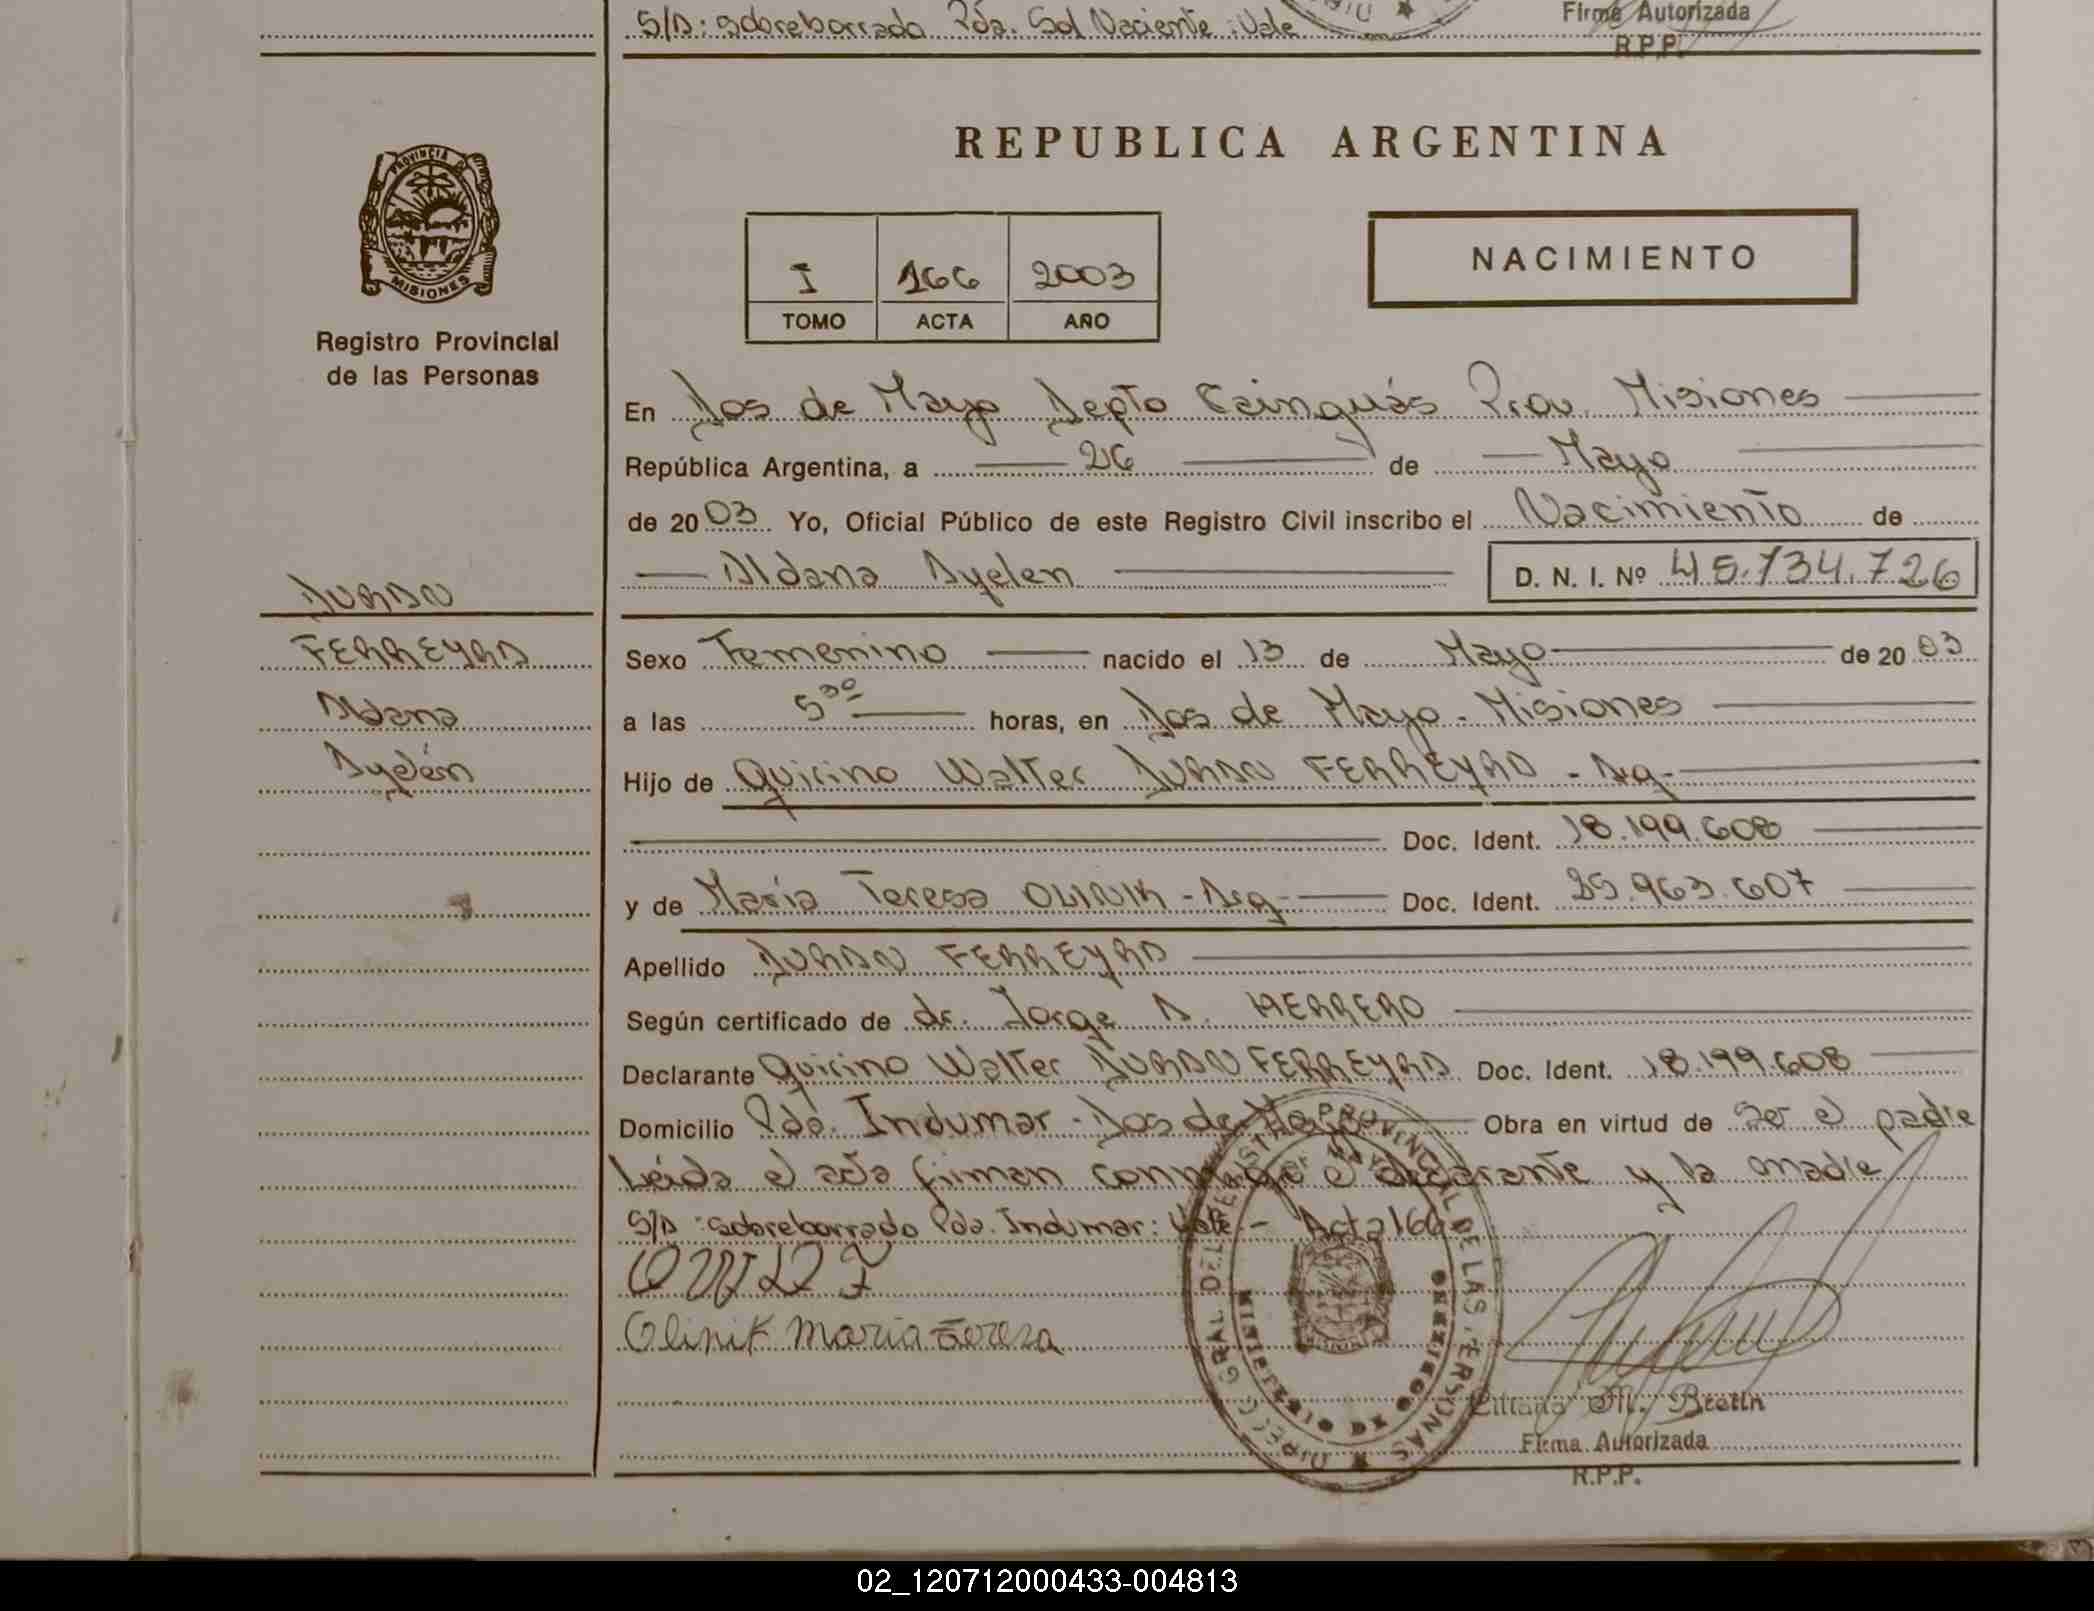 S/A: sobreborrado Pda. Sol Naciente: Vale
Firma Autorizada
R.P.P.
PROVINCIA DE
MISIONES
Registro Provincial
de las Personas
REPUBLICA ARGENTINA
I 166 2003
TOMO ACTA AÑO
NACIMIENTO
En Dos de Mayo Depto Cainguás Prov. Misiones
República Argentina, a 26 de Mayo
de 2003 Yo, Oficial Público de este Registro Civil inscribo el Nacimiento de
Aldana Ayelen D. N. I. Nº 45.134.726
DURAN
FERREYRA
Aldana
Ayelén
Sexo Femenino nacido el 13 de Mayo de 2003
a las 5 30 horas, en Dos de Mayo - Misiones
Hijo de Quirino Walter DURAN FERREYRA - Arg-
Doc. Ident. 18.199.608
y de María Teresa OLINIK - Arg- Doc. Ident. 25.963.607
Apellido DURAN FERREYRA
Según certificado de dr. Jorge A. HERRERO
Declarante Quirino Walter DURAN FERREYRA Doc. Ident. 18.199.608
Domicilio Pda. Indumar - Dos de Mayo Obra en virtud de ser el padre
Leída el acta firman conmigo el declarante y la madre
S/A: sobreborrado Pda. Indumar: Vale.- Acta 166
Olinik Maria Teresa
DIRECC. GRAL. DEL REGISTRO PROVINCIAL DE LAS PERSONAS
MINISTERIO DE GOBIERNO
Liliana M. Brettin
Firma Autorizada
R.P.P.
02_120712000433-004813